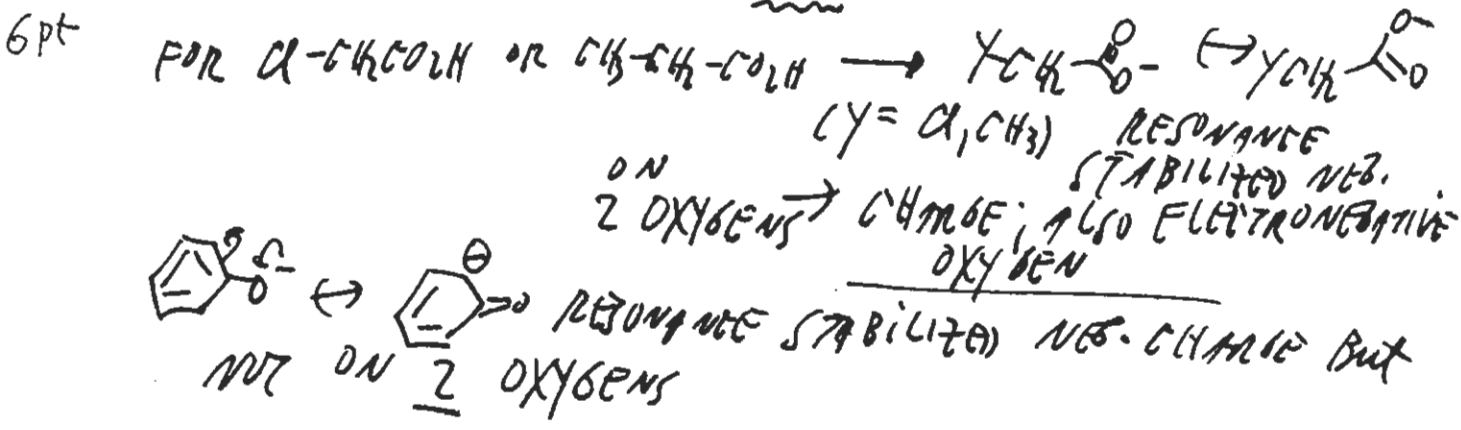 6 pt
FOR Cl-CH2CO2H OR CH3-CH2-CO2H → YCH2-C(=O)O- ↔ YCH2-C(O-)=O
(Y = Cl, CH3) RESONANCE
STABILIZED NEG.
ON
2 OXYGENS → CHARGE; ALSO ELECTRONEGATIVE
OXYGEN
O- ↔ ⊖ =O RESONANCE STABILIZED NEG. CHARGE But
NOT ON 2 OXYGENS